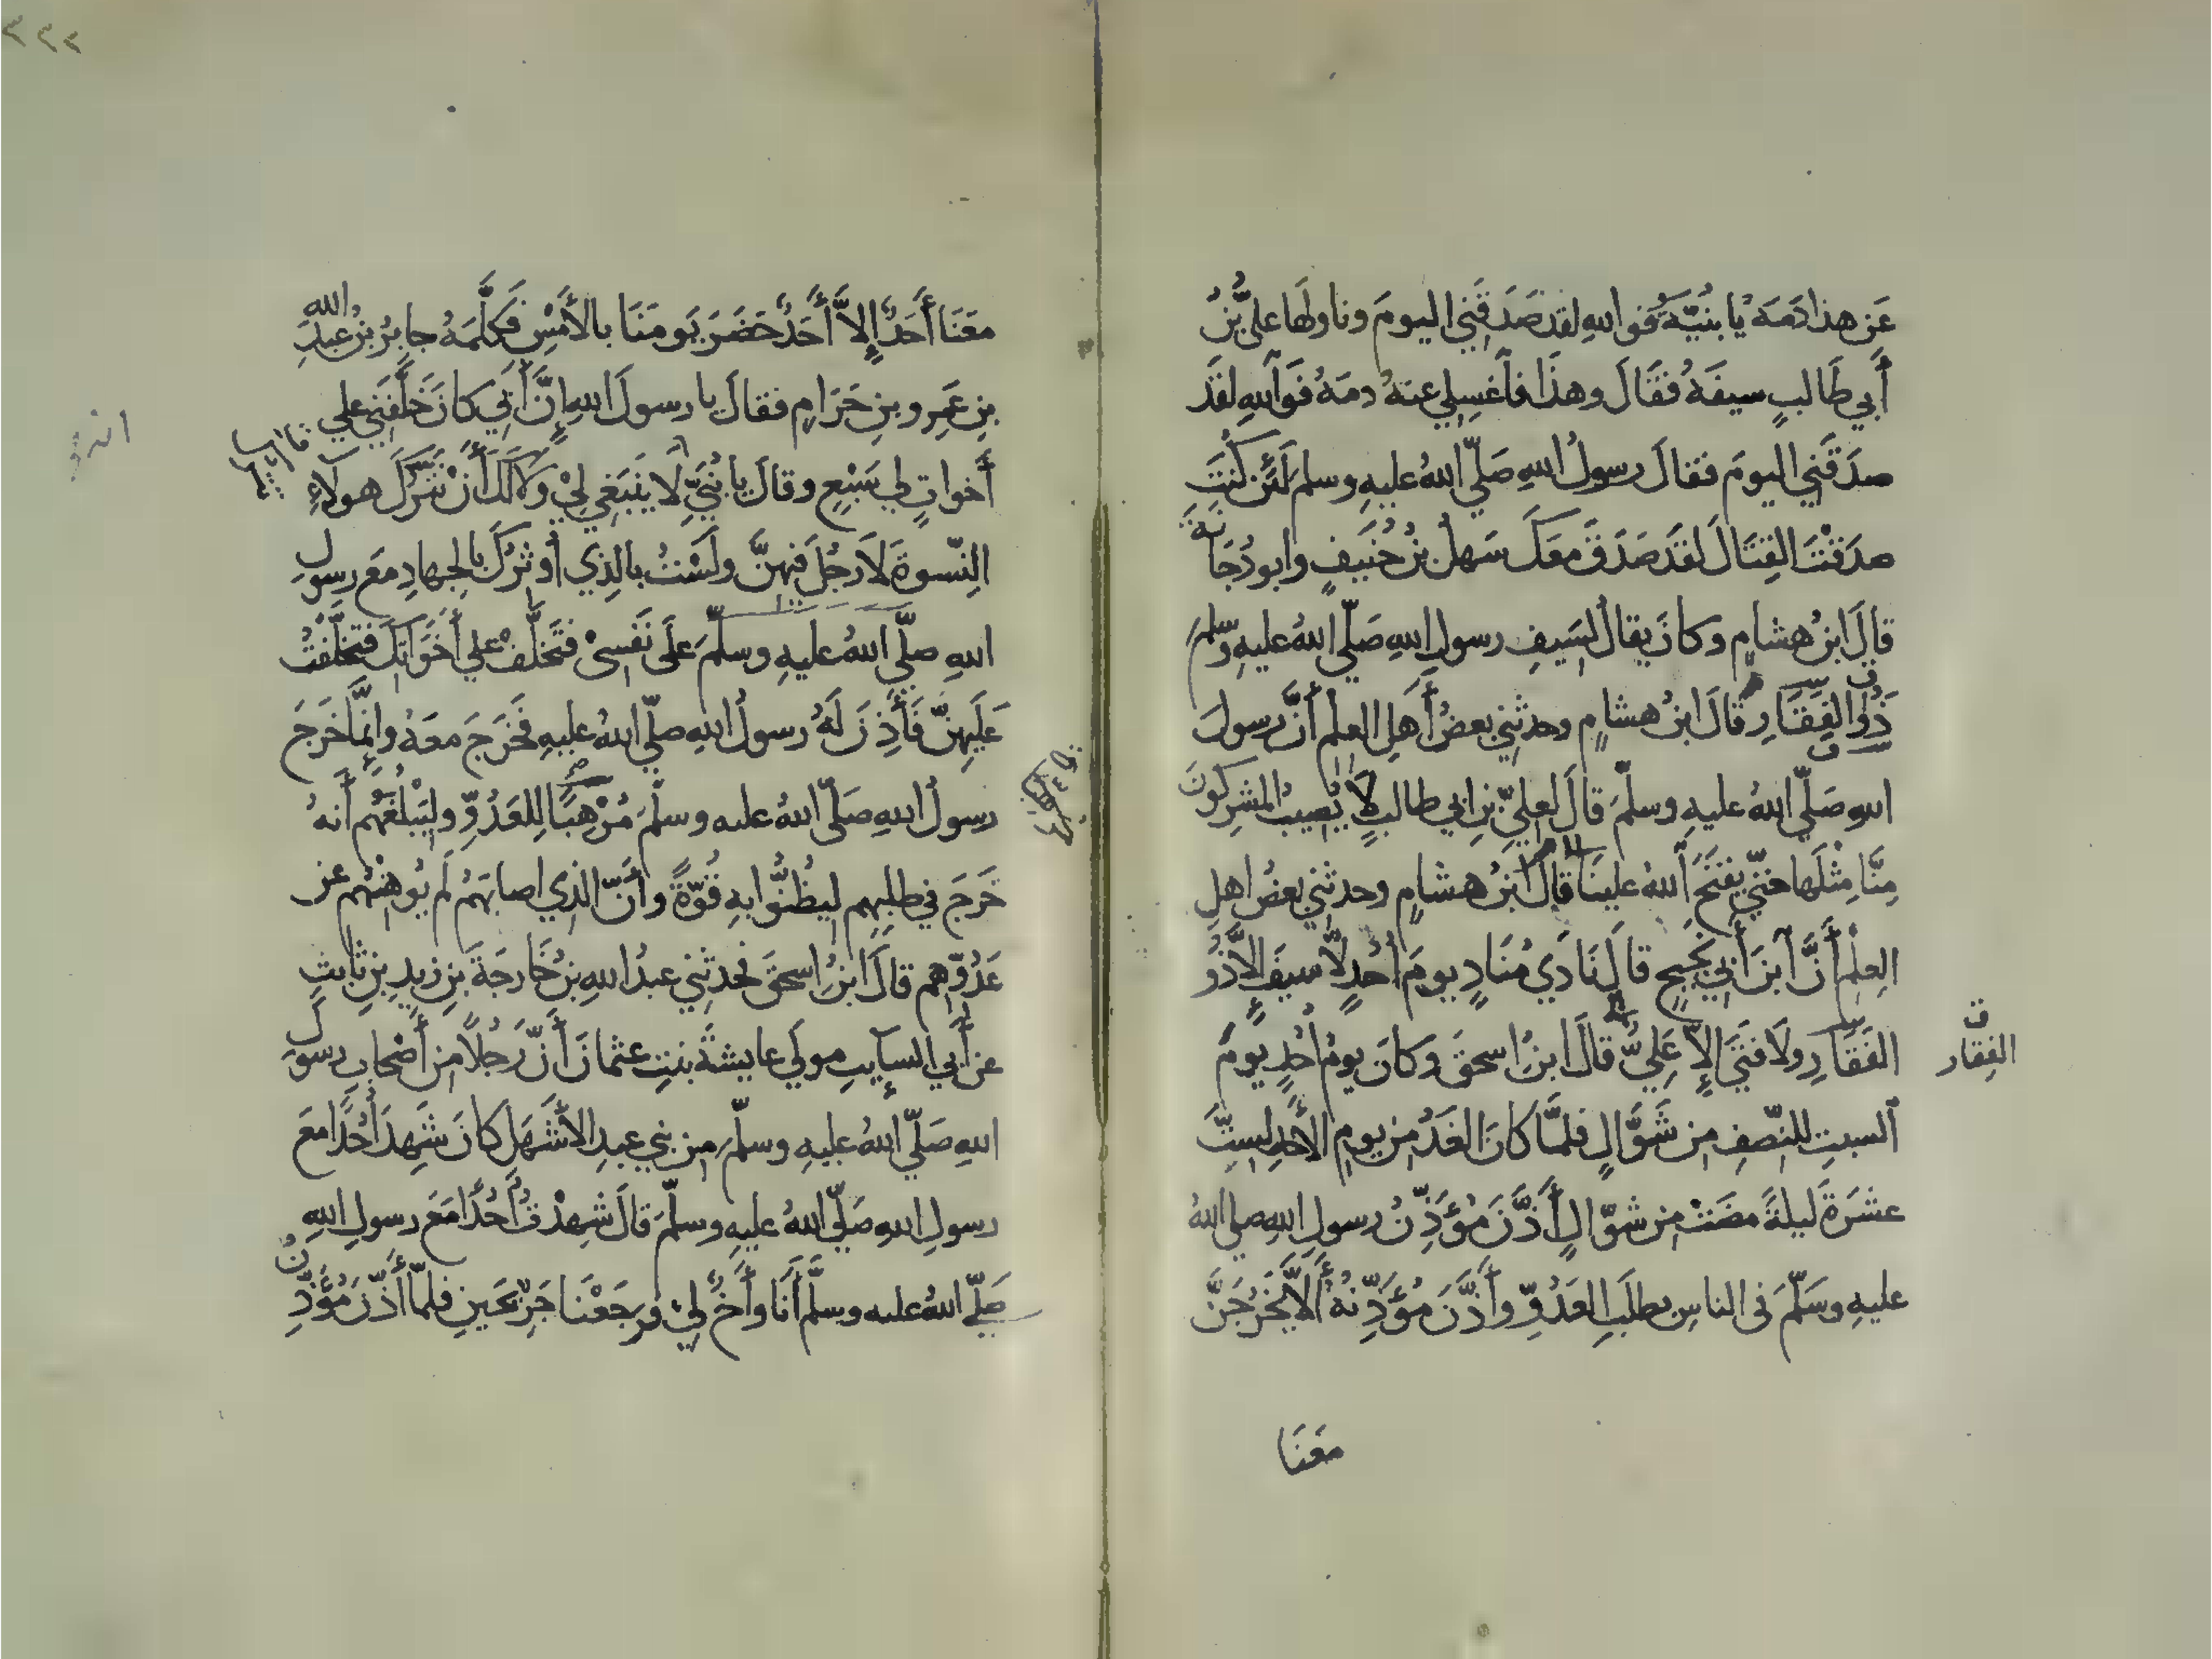 عَن هذا دَمَهُ يا بُنيَّةُ فو اللهِ لقد صَدَقَنِي اليومَ وناولَها علىُّ بنُ
أَبي طَالبٍ سيفَهُ فقَالَ وهذَا فاَغسِلي عنهُ دمَهُ فَوَاللهِ لقَد
صدَقَنِي اليومَ فقالَ رسولُ اللهِ صَلّى اللهُ عليهِ وسلم لَئن كُنتَ
صدَقْتَ القِتَالَ لقَد صَدَقَ معَكَ سَهلُ بنُ حُنَيفٍ وابو دُجَانَةَ
قالَ ابنُ هشامٍ وكانَ يقالُ لسَيفِ رسولِ اللهِ صَلّى اللهُ عليهِ وسلم
ذُو الفَِقَارِ قالَ ابنُ هشامٍ وحدثني بعضُ أَهلِ العلمِ أنَّ رسولَ
اللهِ صَلّى اللهُ عليهِ وسلّمَ قالَ لعليِّ بنِ ابي طالبٍ لا يُصيبُ المشرِكونَ
مِنَّا مِثْلَها حتّي يفتَحَ اللهُ علينَا قالَ ابنُ هشامٍ وحدثني بعضُ اهلِ
العِلْمِ أنَّ اَبنَ أَبي نَجِيحٍ قالَ نَادَي مُنَادٍ يومَ أُحُدٍ لاَ سيفَ إلاَّ ذُو
الفَقَارِ ولاَ فتَيَ إلاّ عَلِيُّ قالَ ابنُ اسحقَ وكانَ يومُ أُحُدٍ يومَ
ق
الفِقار
اَلسبتِ للنِّصفِ مِن شَوَّالٍ فلمَّا كانَ الغَدُ مِن يومِ الأَحَدِ لسِتَّ
عشرَةَ ليلةً مضَتْ مِن شوّالٍ أَذَّنَ مُؤَذِّنُ رسولِ اللهِ صلى اللهُ
عليهِ وسَلّمَ في الناسِ بطلَبِ العَدُوِّ وأَذَّنَ مُؤَذِّنُهُ أَلاَّ يَخْرُجَنَّ
معَنَا
٣٣٢
معَنَا أَحَدٌ إلاَّ أَحَدٌ حَضَرَ يَومَنَا بالأَمْسِ فكلَّمَهُ جابرُ بنُ عبدِ الله
بنِ عَمرِو بنِ حَرَامٍ فقالَ يا رسولَ اللهِ إنَّ أَبي كانَ خَلَّفَنِي علي
أَخواتٍ لي سَبْعٍ وقالَ يا بُنَيِّ لاَ ينبَغِي لِي وَلاَ لكَ أَنْ نَترُكَ هولاَءِ
النِّسوةَ لاَ رجُلَ فيهنَّ ولَسْتُ بالذِي أُوثِرُكَ بالجهادِ معَ رسولِ
اللهِ صلّى اللهُ عليهِ وسلّمَ علَى نَفسِيْ فتَخلَّفْ علي أَخَوَاتِكَ فتخلَّفْتُ
عَلَيهنَّ فَأَذِنَ لَهُ رسولُ اللهِ صلّى اللهُ عليهِ فخَرَجَ معَهُ وإنَّمَا خرَجَ
رسولُ اللهِ صَلّى اللهُ عليه وسلّمَ مُرْهِبًا لِلعَدُوِّ ولِيَبْلُغَهُم أَنهُ
خَرَجَ في طلبِهِم لِيظُنُّوا بهِ قُوّةً وأَنَّ الذِي اصابَهُمْ لَم يُوهِنْهُم عن
عَدُوِّهِم قالَ ابنُ اسحقَ فحدثني عبدُ اللهِ بنُ خَارجَةَ بنِ زيدِ بنِ ثابتٍ
عن أَبي السايبِ مولَي عايشةَ بنتِ عثمانَ أَنّ رَجُلاً مِن أَصْحابِ رسولِ
اللهِ صَلّى اللهُ عليهِ وسلّمَ مِن بني عبدِ الأَشْهَلِ كانَ شَهِدَ أُحُدًا معَ
رسولِ اللهِ صَلّى اللهُ عليهِ وسلّمَ قالَ شهِدْتُ أُحُدًا مَعَ رسولِ اللهِ
صَلّى اللهُ عليه وسلَّم أَنَا وأَخٌ لِي فرجَعْنَا جَرِيْحَينِ فلمّا أَذَّنَ مُؤَذِّنُ